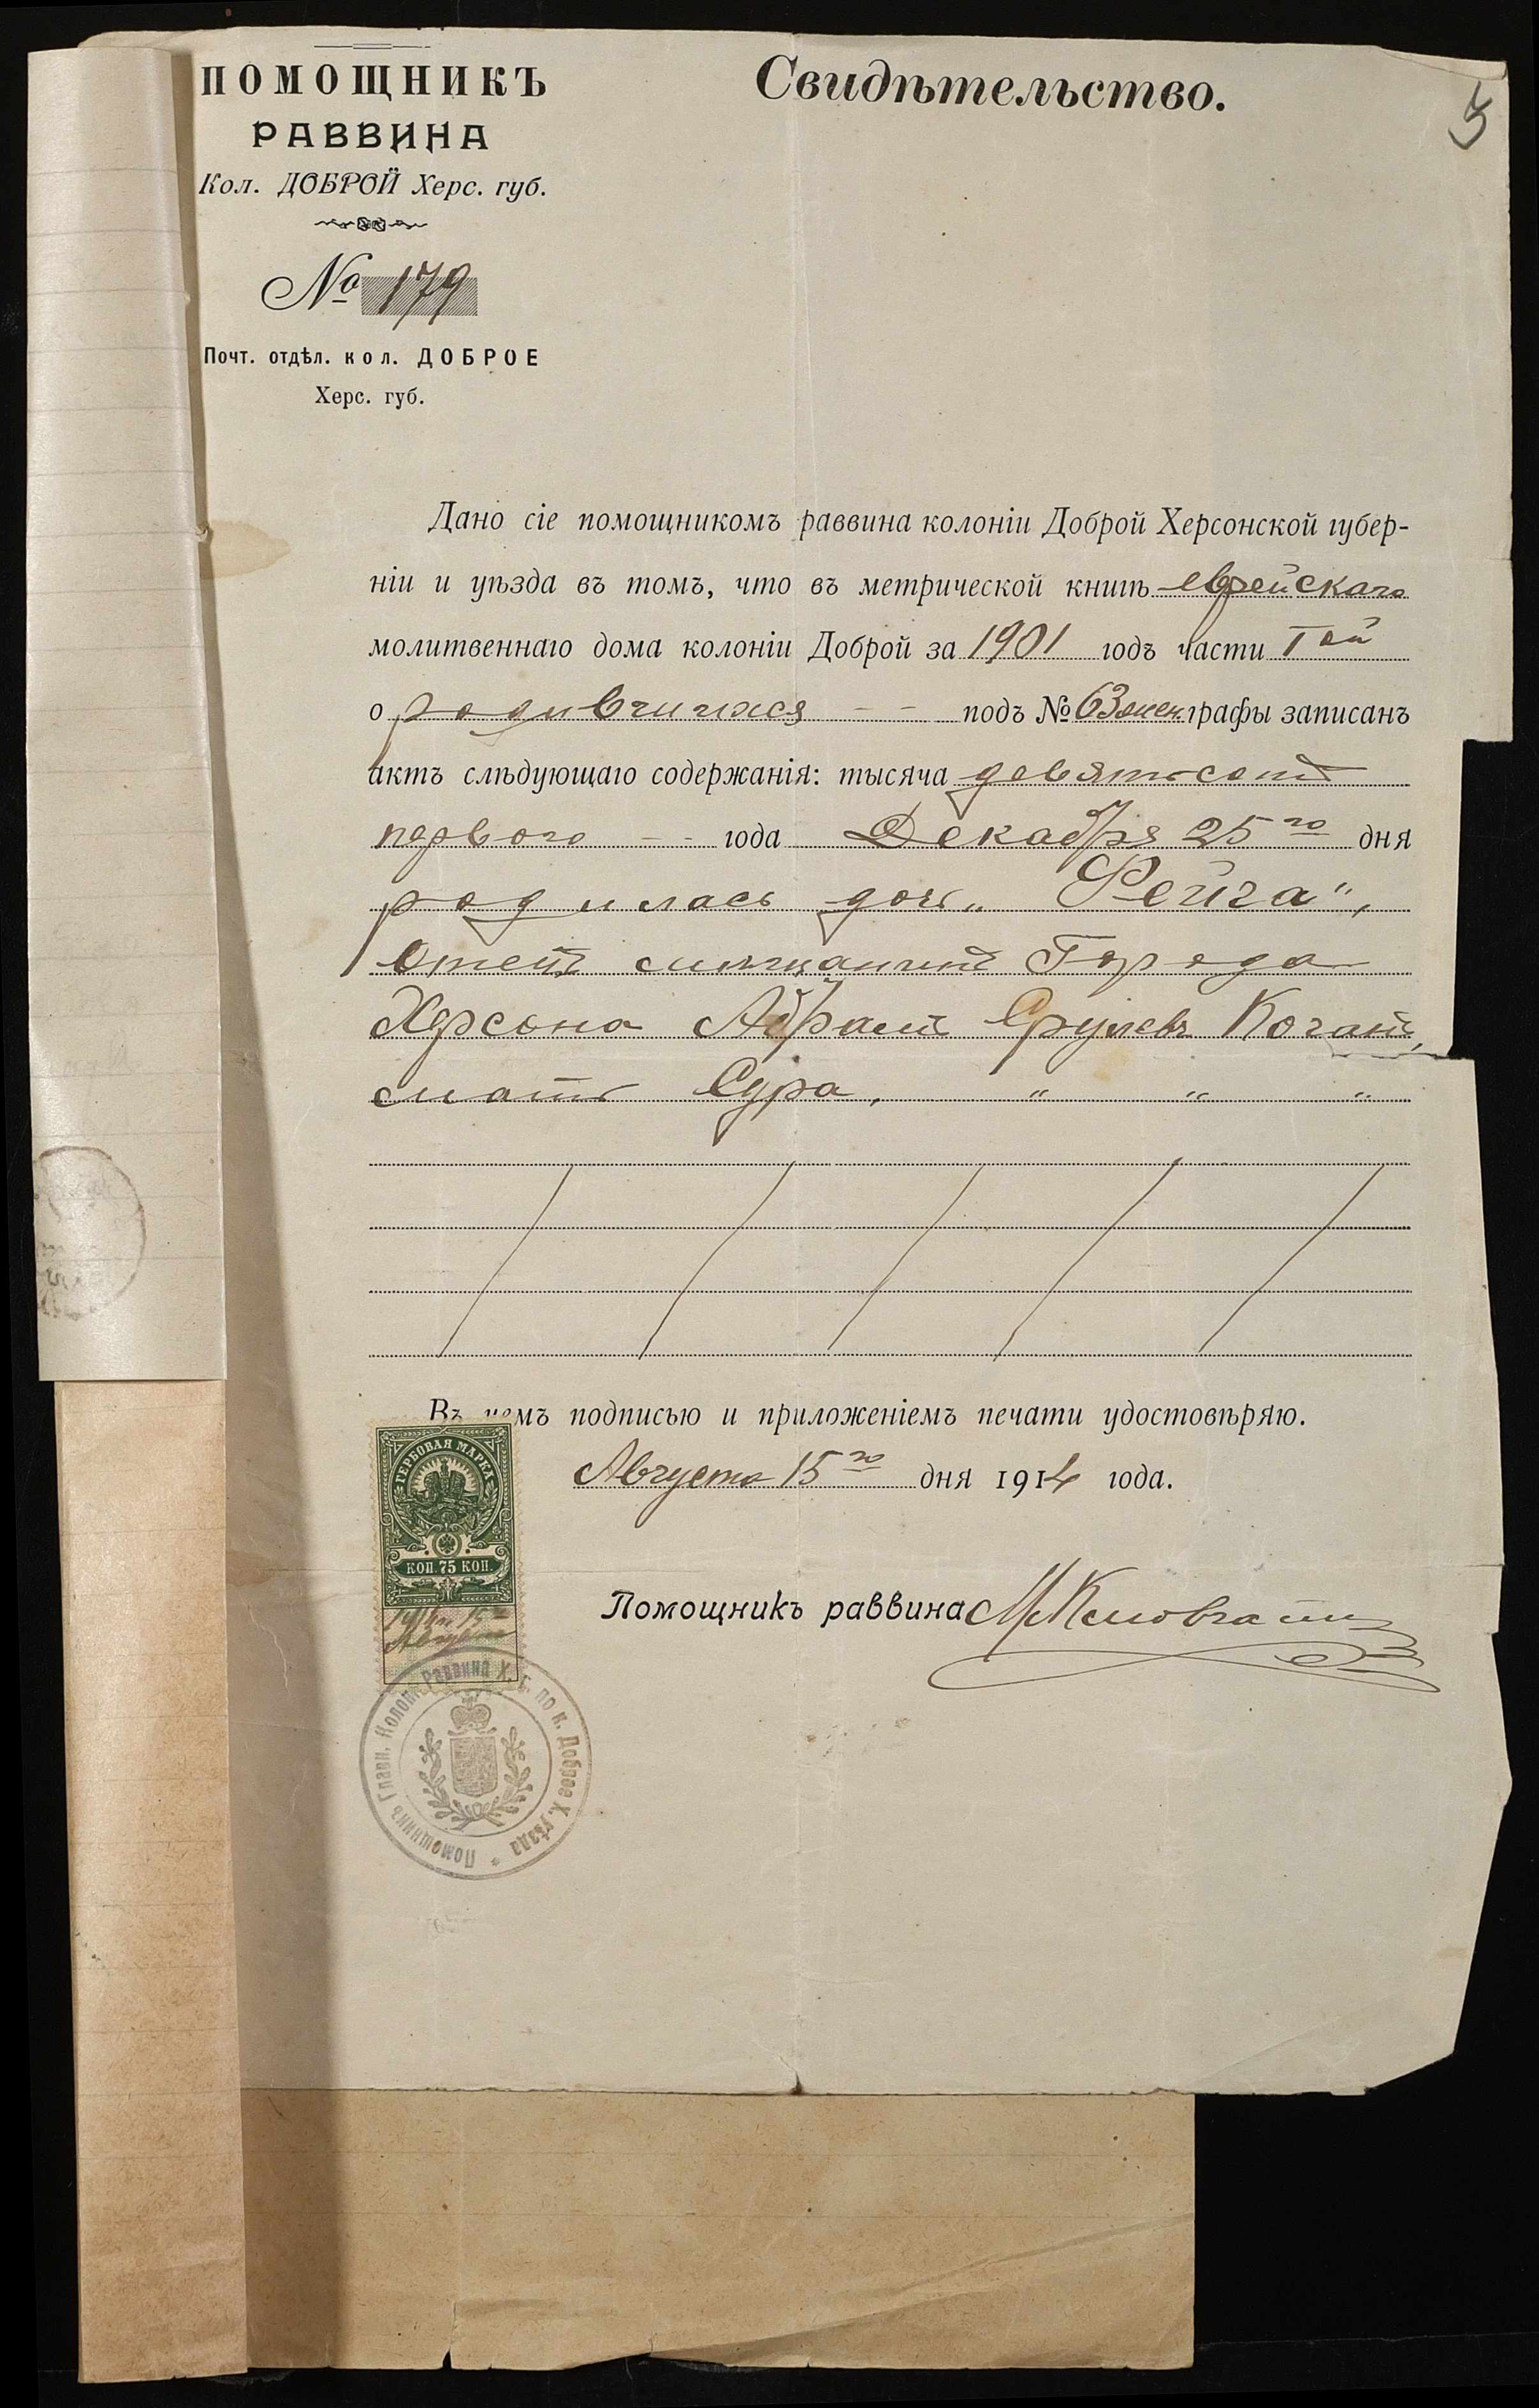 ПОМОЩНИКЪ
РАВВИНА
Кол. ДОБРОЙ Херс. губ.
№ 179
Почт. отдѣл. кол. ДОБРОЕ
Херс. губ.
Свидѣтельство.
5
Дано сіе помощникомъ раввина колоніи Доброй Херсонской губер-
ніи и уѣзда въ томъ, что въ метрической книгѣ еврейскаго
молитвеннаго дома колоніи Доброй за 1901 годъ части I ой
о родившихся - - подъ № 63 жен. графы записанъ
актъ слѣдующаго содержанія: тысяча девятьсотъ
перваго - - года Декабря 25 го дня
родилась дочь „Фейга“,
Отецъ мѣщанинъ Города
Херсона Абрамъ Срулевъ Коганъ,
мать Сура, " " "
Въ чемъ подписью и приложеніемъ печати удостовѣряю.
Августа 15 го дня 1914 года.
ГЕРБОВАЯ МАРКА
КОП. 75 КОП.
1914 г. 15 го
Августа
Помощникъ раввина
Помощникъ Главн. Колон. Раввина Х. Г. по к. Доброе Х. уѣзда *